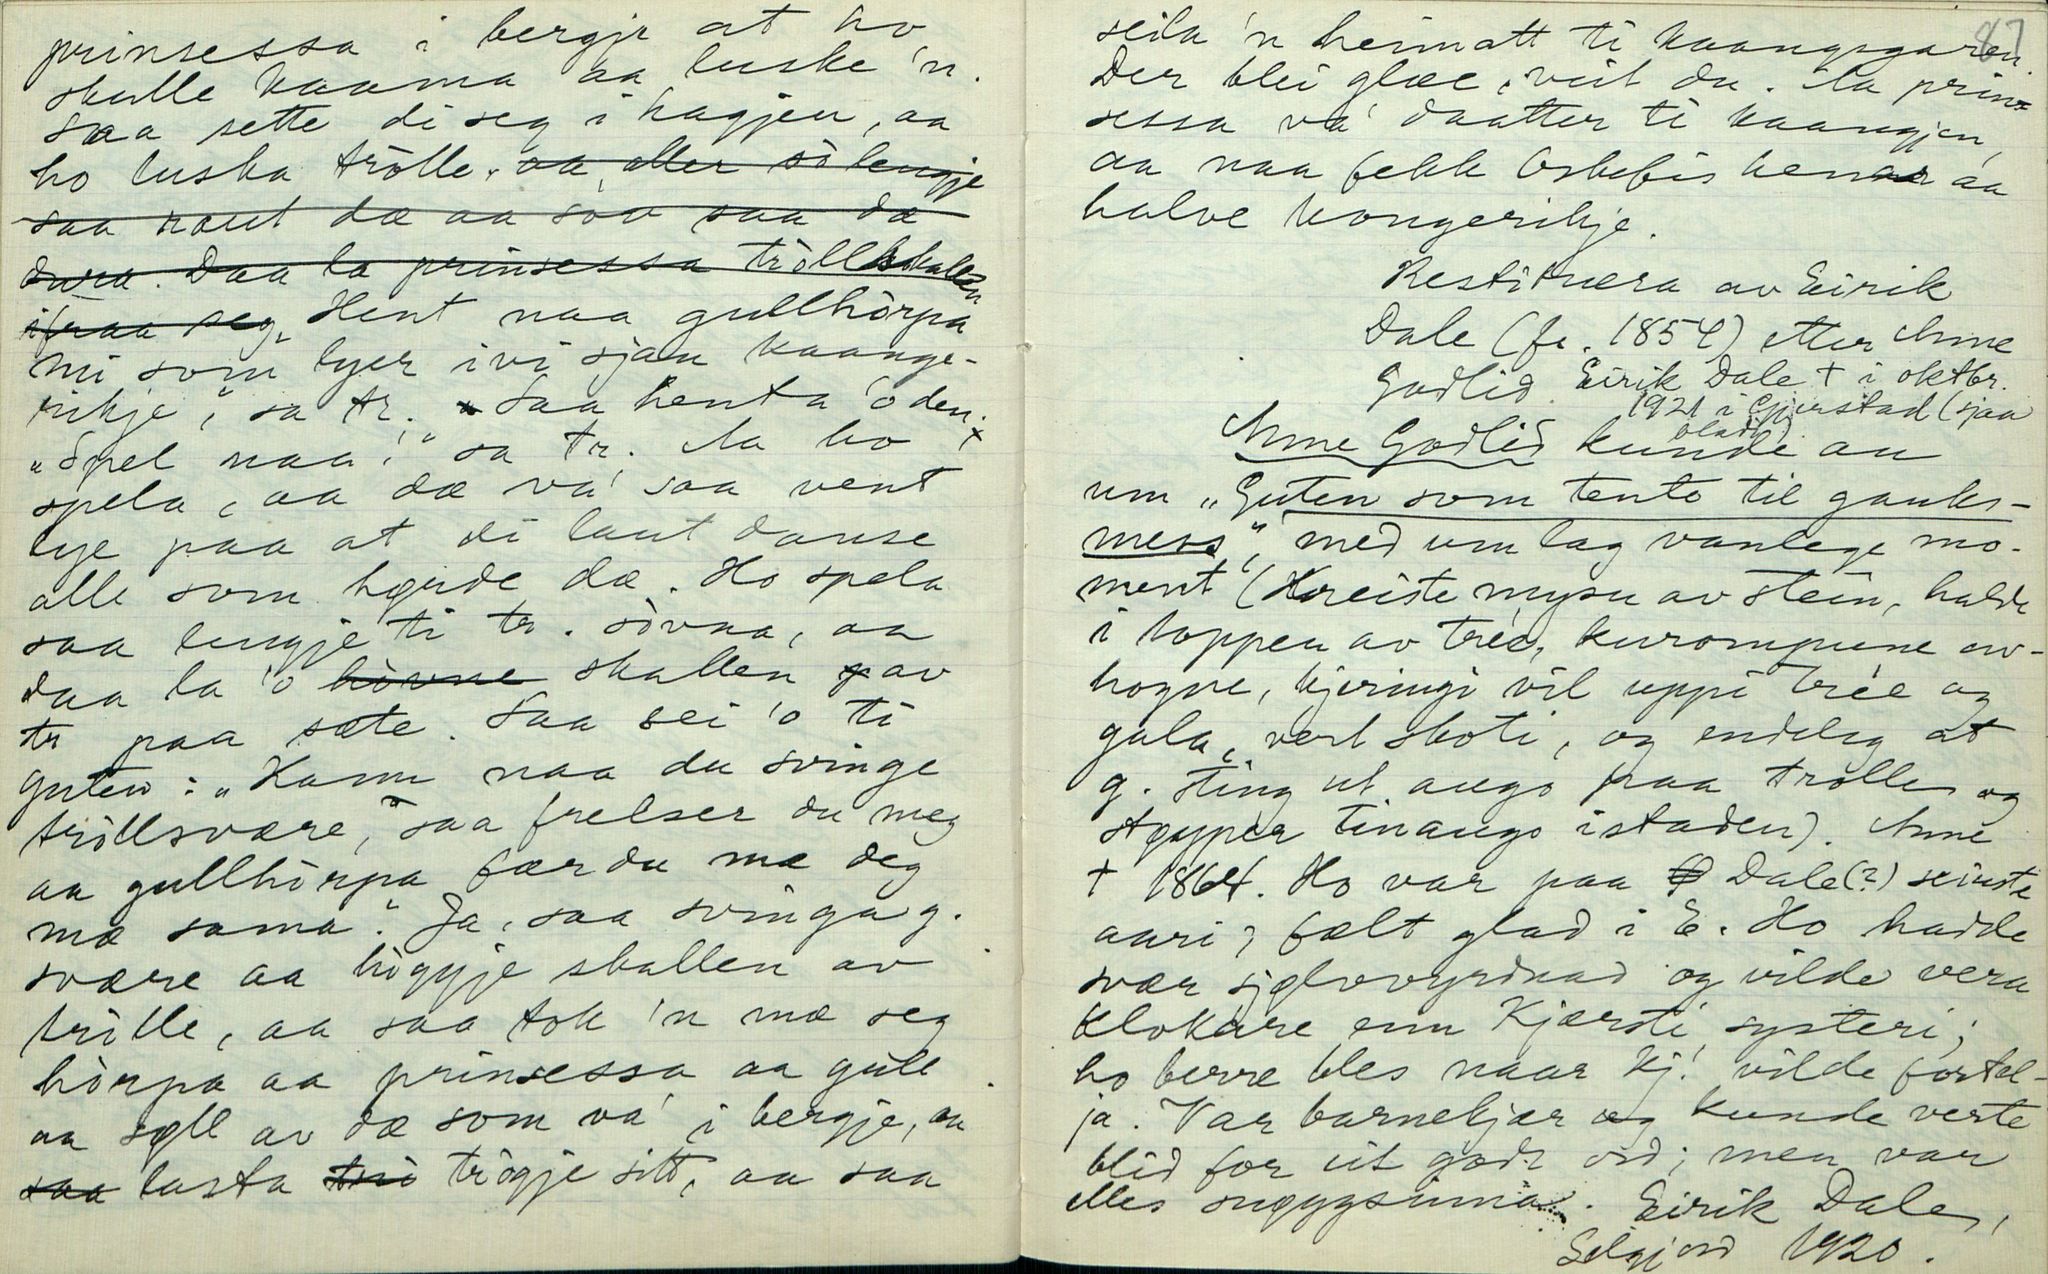 prinsessa i bergje at ho
skulle kaama aa luske 'n.
Saa sette di seg i hagjen, aa
ho luska trölle. aa, aller sö lengje
saa raut dæ aa sov saa dæ
dura. Daa la prinsessa tröllskallen
ifraa seg. Hent naa gullhörpa
mi som lyer ivi sjau kaange-
rikje", sa tr. Saa henta 'o den.
"Spel naa!" sa tr. Aa ho
spela, aa dæ va' saa vent
lye paa at di laut danse
alle som höyrde dæ. Ho spela
saa lengje ti tr. sòvna, aa
daa la 'o hövne skallen av
tr paa sæte. Saa sei 'o ti
guten: "Kann naa du svinge
tröllsvære, saa frelser du meg
aa gullhörpa fær du mæ deg
mæ sama". Ja, saa svinga g.
svære aa höggje skallen av
trölle, aa saa tok 'n mæ seg
hörpa aa prinsessa aa gull
aa sølv av dæ som va' i bergje, aa
saa lasta trögje sitt, aa saa
87
seila 'n heimatt ti kaangsgaren.
Der blei glæe, veit du. Aa prin-
sessa va' daatter ti kaangjen,
aa naa fekk Oskefis henar aa
halve kongerikje.
Restituera av Eirik
Dale (fø. 1854) etter Anne
Godlid. Eirik Dale † i oktbr.
1921 i Gjerstad (sjaa
blad)
Anne Godlid kunde au
um "Guten som tente til gauks-
mess", med um lag vanlege mo-
ment (Kreiste mysu av stein, halde
i toppen av tréé, kurompune av-
hogne, kjeringi vil uppi tréé og
gala, vert skoti, og endeleg at
g. sting ut augo paa trolle og
støyper tinaugo istaden). Anne
† 1864. Ho var paa Dale(?) seinste
aari; fælt glad i E. Ho hadde
svær sjølvvyrdnad og vilde vera
klokare enn Kjærsti systeri;
ho berre bles naar Kj. vilde fortel-
ja. Var barnekjær og kunde verte
blid for eit godt ord; men var
elles snøggsinna. Eirik Dale,
Seljord 1920.